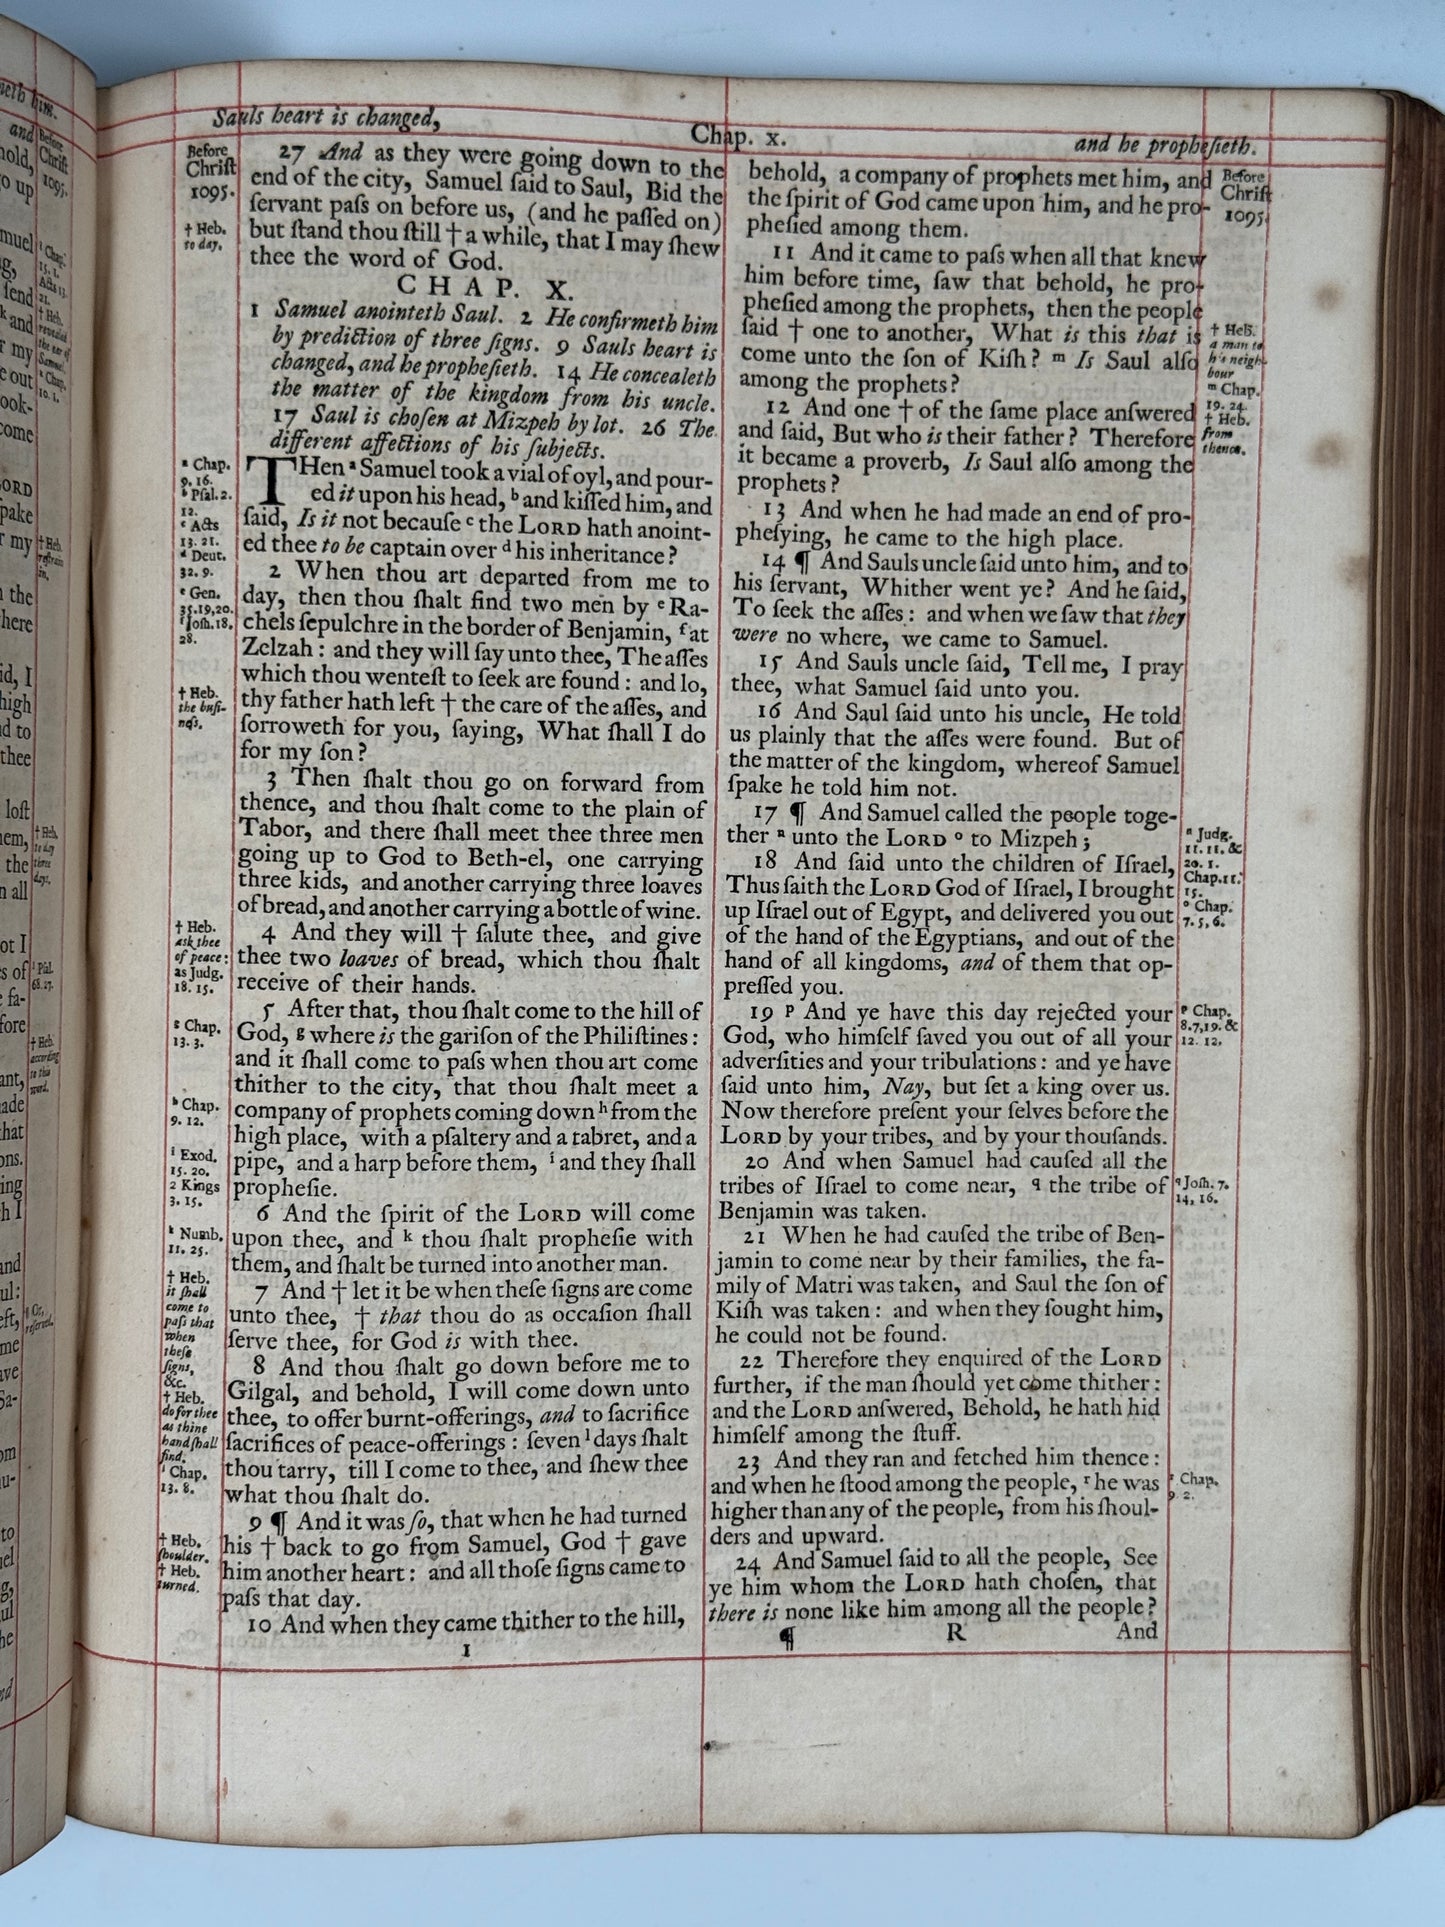 Sauls heart is changed,
Chap. x.
and he prophesieth.
Before
Chriſt
1095.
† Heb.
to day.
27 And as they were going down to the
end of the city, Samuel ſaid to Saul, Bid the
ſervant paſs on before us, (and he paſſed on)
but ſtand thou ſtill † a while, that I may ſhew
thee the word of God.
CHAP. X.
1 Samuel anointeth Saul. 2 He confirmeth him
by prediction of three ſigns. 9 Sauls heart is
changed, and he propheſieth. 14 He concealeth
the matter of the kingdom from his uncle.
17 Saul is choſen at Mizpeh by lot. 26 The
different affections of his ſubjects.
ᵃ Chap.
9. 16.
ᵇ Pſal. 2.
12.
ᶜ Acts
13. 21.
ᵈ Deut.
32. 9.
ᵉ Gen.
35.19,20.
ᶠ Joſh. 18.
28.
† Heb.
the buſi-
neſs.
THen ᵃ Samuel took a vial of oyl, and pour-
ed it upon his head, ᵇ and kiſſed him, and
ſaid, Is it not becauſe ᶜ the LORD hath anoint-
ed thee to be captain over ᵈ his inheritance?
2 When thou art departed from me to
day, then thou ſhalt find two men by ᵉ Ra-
chels ſepulchre in the border of Benjamin, ᶠ at
Zelzah: and they will ſay unto thee, The aſſes
which thou wenteſt to ſeek are found: and lo,
thy father hath left † the care of the aſſes, and
ſorroweth for you, ſaying, What ſhall I do
for my ſon?
3 Then ſhalt thou go on forward from
thence, and thou ſhalt come to the plain of
Tabor, and there ſhall meet thee three men
going up to God to Beth-el, one carrying
three kids, and another carrying three loaves
of bread, and another carrying a bottle of wine.
† Heb.
ask thee
of peace:
as Judg.
18. 15.
4 And they will † ſalute thee, and give
thee two loaves of bread, which thou ſhalt
receive of their hands.
ᵍ Chap.
13. 3.
5 After that, thou ſhalt come to the hill of
God, ᵍ where is the gariſon of the Philiſtines:
and it ſhall come to paſs when thou art come
thither to the city, that thou ſhalt meet a
ʰ Chap.
9. 12.
ⁱ Exod.
15. 20.
2 Kings
3. 15.
company of prophets coming down ʰ from the
high place, with a pſaltery and a tabret, and a
pipe, and a harp before them, ⁱ and they ſhall
propheſie.
ᵏ Numb.
11. 25.
6 And the ſpirit of the LORD will come
upon thee, and ᵏ thou ſhalt propheſie with
them, and ſhalt be turned into another man.
† Heb.
it ſhall
come to
paſs that
when
theſe
ſigns,
&c.
† Heb.
do for thee
as thine
hand ſhall
find.
ˡ Chap.
13. 8.
7 And † let it be when theſe ſigns are come
unto thee, † that thou do as occaſion ſhall
ſerve thee, for God is with thee.
8 And thou ſhalt go down before me to
Gilgal, and behold, I will come down unto
thee, to offer burnt-offerings, and to ſacrifice
ſacrifices of peace-offerings: ſeven ˡ days ſhalt
thou tarry, till I come to thee, and ſhew thee
what thou ſhalt do.
† Heb.
ſhoulder.
† Heb.
turned.
9 ¶ And it was ſo, that when he had turned
his † back to go from Samuel, God † gave
him another heart: and all thoſe ſigns came to
paſs that day.
10 And when they came thither to the hill,
1
behold, a company of prophets met him, and
the ſpirit of God came upon him, and he pro-
pheſied among them.
11 And it came to paſs when all that knew
him before time, ſaw that behold, he pro-
pheſied among the prophets, then the people
ſaid † one to another, What is this that is
come unto the ſon of Kiſh? ᵐ Is Saul alſo
among the prophets?
12 And one † of the ſame place anſwered
and ſaid, But who is their father? Therefore
it became a proverb, Is Saul alſo among the
prophets?
13 And when he had made an end of pro-
pheſying, he came to the high place.
14 ¶ And Sauls uncle ſaid unto him, and to
his ſervant, Whither went ye? And he ſaid,
To ſeek the aſſes: and when we ſaw that they
were no where, we came to Samuel.
15 And Sauls uncle ſaid, Tell me, I pray
thee, what Samuel ſaid unto you.
16 And Saul ſaid unto his uncle, He told
us plainly that the aſſes were found. But of
the matter of the kingdom, whereof Samuel
ſpake he told him not.
17 ¶ And Samuel called the people toge-
ther ⁿ unto the LORD ᵒ to Mizpeh;
18 And ſaid unto the children of Iſrael,
Thus ſaith the LORD God of Iſrael, I brought
up Iſrael out of Egypt, and delivered you out
of the hand of the Egyptians, and out of the
hand of all kingdoms, and of them that op-
preſſed you.
19 ᵖ And ye have this day rejected your
God, who himſelf ſaved you out of all your
adverſities and your tribulations: and ye have
ſaid unto him, Nay, but ſet a king over us.
Now therefore preſent your ſelves before the
LORD by your tribes, and by your thouſands.
20 And when Samuel had cauſed all the
tribes of Iſrael to come near, q the tribe of
Benjamin was taken.
21 When he had cauſed the tribe of Ben-
jamin to come near by their families, the fa-
mily of Matri was taken, and Saul the ſon of
Kiſh was taken: and when they ſought him,
he could not be found.
22 Therefore they enquired of the LORD
further, if the man ſhould yet come thither:
and the LORD anſwered, Behold, he hath hid
himſelf among the ſtuff.
23 And they ran and fetched him thence:
and when he ſtood among the people, ʳ he was
higher than any of the people, from his ſhoul-
ders and upward.
24 And Samuel ſaid to all the people, See
ye him whom the LORD hath choſen, that
there is none like him among all the people?
¶ R And
Before
Chriſt
1095.
† Heb.
a man to
his neigh-
bour
ᵐ Chap.
19. 24.
† Heb.
from
thence.
ⁿ Judg.
11. 11. &
20. 1.
Chap. 11.
15.
ᵒ Chap.
7. 5, 6.
ᵖ Chap.
8.7,19. &
12. 12.
q Joſh. 7.
14, 16.
ʳ Chap.
9. 2.